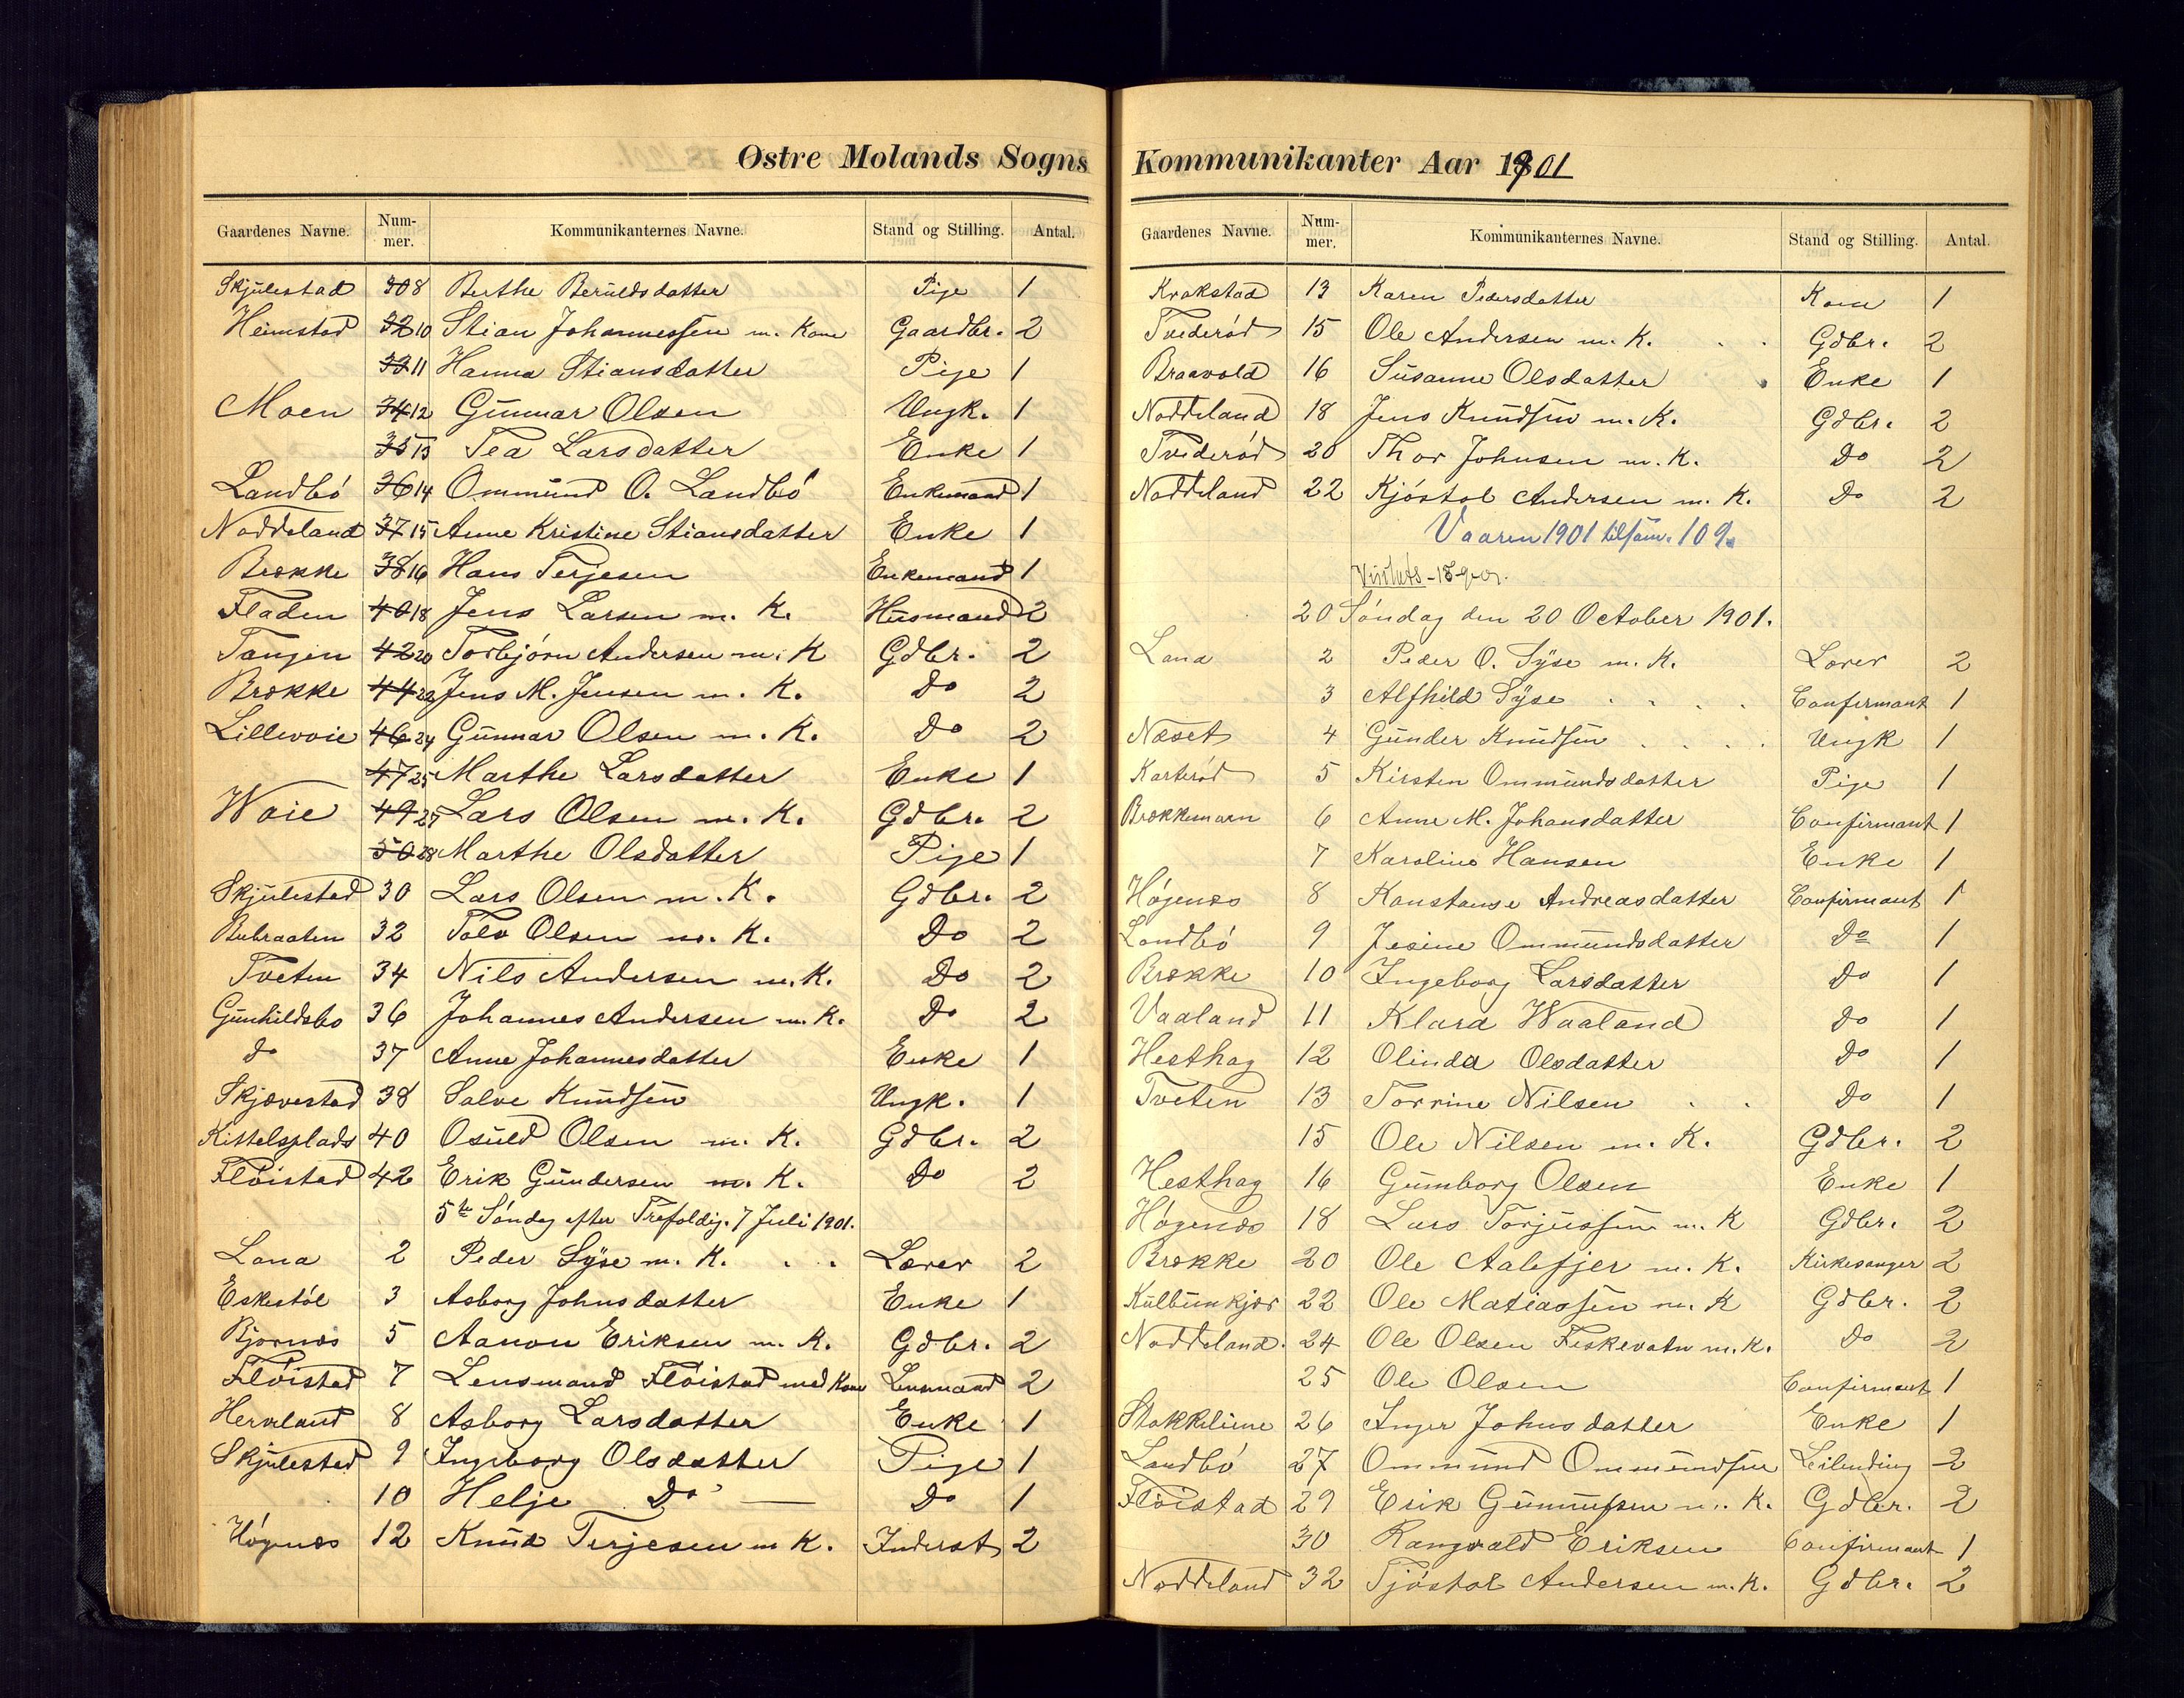 Østre Molands Sogns
Gaardenes Navne. Num-mer. Kommunikanternes Navne. Stand og Stilling. Antal.
Skjulestad 308 Berthe Beruldsdatter Pige 1
Heimstad 32 10 Stian Johannessen m. Kone Gaardbr. 2
33 11 Hanna Stiansdatter Pige 1
Moen 34 12 Gunnar Olsen Ungk. 1
35 13 Tea Larsdatter Enke 1
Landbö 36 14 Ommund O. Landbö Enkemand 1
Noddeland 37 15 Anne Kristine Stiansdatter Enke 1
Brekke 38 16 Hans Terjesen Enkemand 1
Fladen 40 18 Jens Larsen m. K. Husmand 2
Tangen 42 20 Torbjörn Andersen m. K Gdbr. 2
Brekke 44 22 Jens M. Jensen m. K. Do 2
Lillevoie 46 24 Gunnar Olsen m. K. Do 2
47 25 Marthe Larsdatter Enke 1
Woie 49 27 Lars Olsen m. K. Gdbr. 2
50 28 Marthe Olsdatter Pige 1
Skjulestad 30 Lars Olsen m. K. Gdbr. 2
32 Olsen m. K. Do 2
Tveten 34 Nils Andersen m. K. Do 2
Gunhildsbo 36 Johannes Andersen m. K. Do 2
do 37 Anne Johannesdatter Enke 1
Skjævestad 38 Salve Knudsen Ungk. 1
Kittelsplads 40 Osuld Olsen m. K. Gdbr. 2
Flöistad 42 Erik Gundersen m. K. Do 2
5te Söndag efter Trefoldig. 7 Juli 1901.
Lona 2 Peder Syse m. K. . . Lærer 2
Eskestöl 3 Asborg Johnsdatter Enke 1
Bjornes 5 Aanon Eriksen m. K. Gdbr. 2
Flöistad 7 Lensmand Flöistad med Kone Lensmand 2
8 Asborg Larsdatter Enke 1
Skjulestad 9 Ingeborg Olsdatter Pige 1
10 Helje Do — Do 1
Högenæs 12 Knud Terjesen m K. Inderst 2
Kommunikanter Aar 1901
Gaardenes Navne. Num-mer. Kommunikanternes Navne. Stand og Stilling. Antal.
Krokstad 13 Karen Pedersdatter Kone 1
Tvederöd 15 Ole Andersen m. K. . . Gdbr. 2
Braavold 16 Susanne Olsdatter Enke 1
Noddeland 18 Jens Knudsen m. K. Gdbr. 2
Tvederöd 20 Thor Johnsen m. K. Do 2
Noddeland 22 Kjöstol Andersen m. K. Do 2
Vaaren 1901 tilsam. 109.
20 Söndag den 20 October 1901.
Lona 2 Peder O. Syse m. K. Lærer 2
3 Alfhild Syse . . . . Confirmant 1
Næset 4 Gunder Knudsen . . . . Ungk 1
Karteröd 5 Kirsten Ommundsdatter Pige 1
Brekkemoen 6 Anne M. Johansdatter Confirmant 1
7 Karoline Hansen Enke 1
Högenæs 8 Konstanse Andreasdatter Confirmant 1
Landbö 9 Jesine Ommundsdatter Do 1
Brekke 10 Ingeborg Larsdatter Do 1
Vaaland 11 Klara Waaland Do 1
Hesthag 12 Olinda Olsdatter Do 1
Tveten 13 Torrine Nilsen . . Do 1
15 Ole Nilsen m. K. Gdbr. 2
Hesthag 16 Gumborg Olsen Enke 1
Högenæs 18 Lars Torjussen m. K Gdbr. 2
Brekke 20 Ole Aalefjer m. K. Kirkesanger 2
Kulbunkjær 22 Ole Matiassen m. K Gdbr. 2
Noddeland. 24 Ole Olsen Fiskevatn m. K. Do 2
25 Ole Olsen Confirmant 1
Stokkeliene 26 Inger Johnsdatter Enke 1
Landbö 27 Ommund Ommundsen Leilending 2
Flöistad 29 Erik Gunnufsen m. K. Gdbr. 2
30 Rangvald Eriksen Confirmant 1
Noddeland 32 Tjöstol Andersen m. K. Gdbr. 2